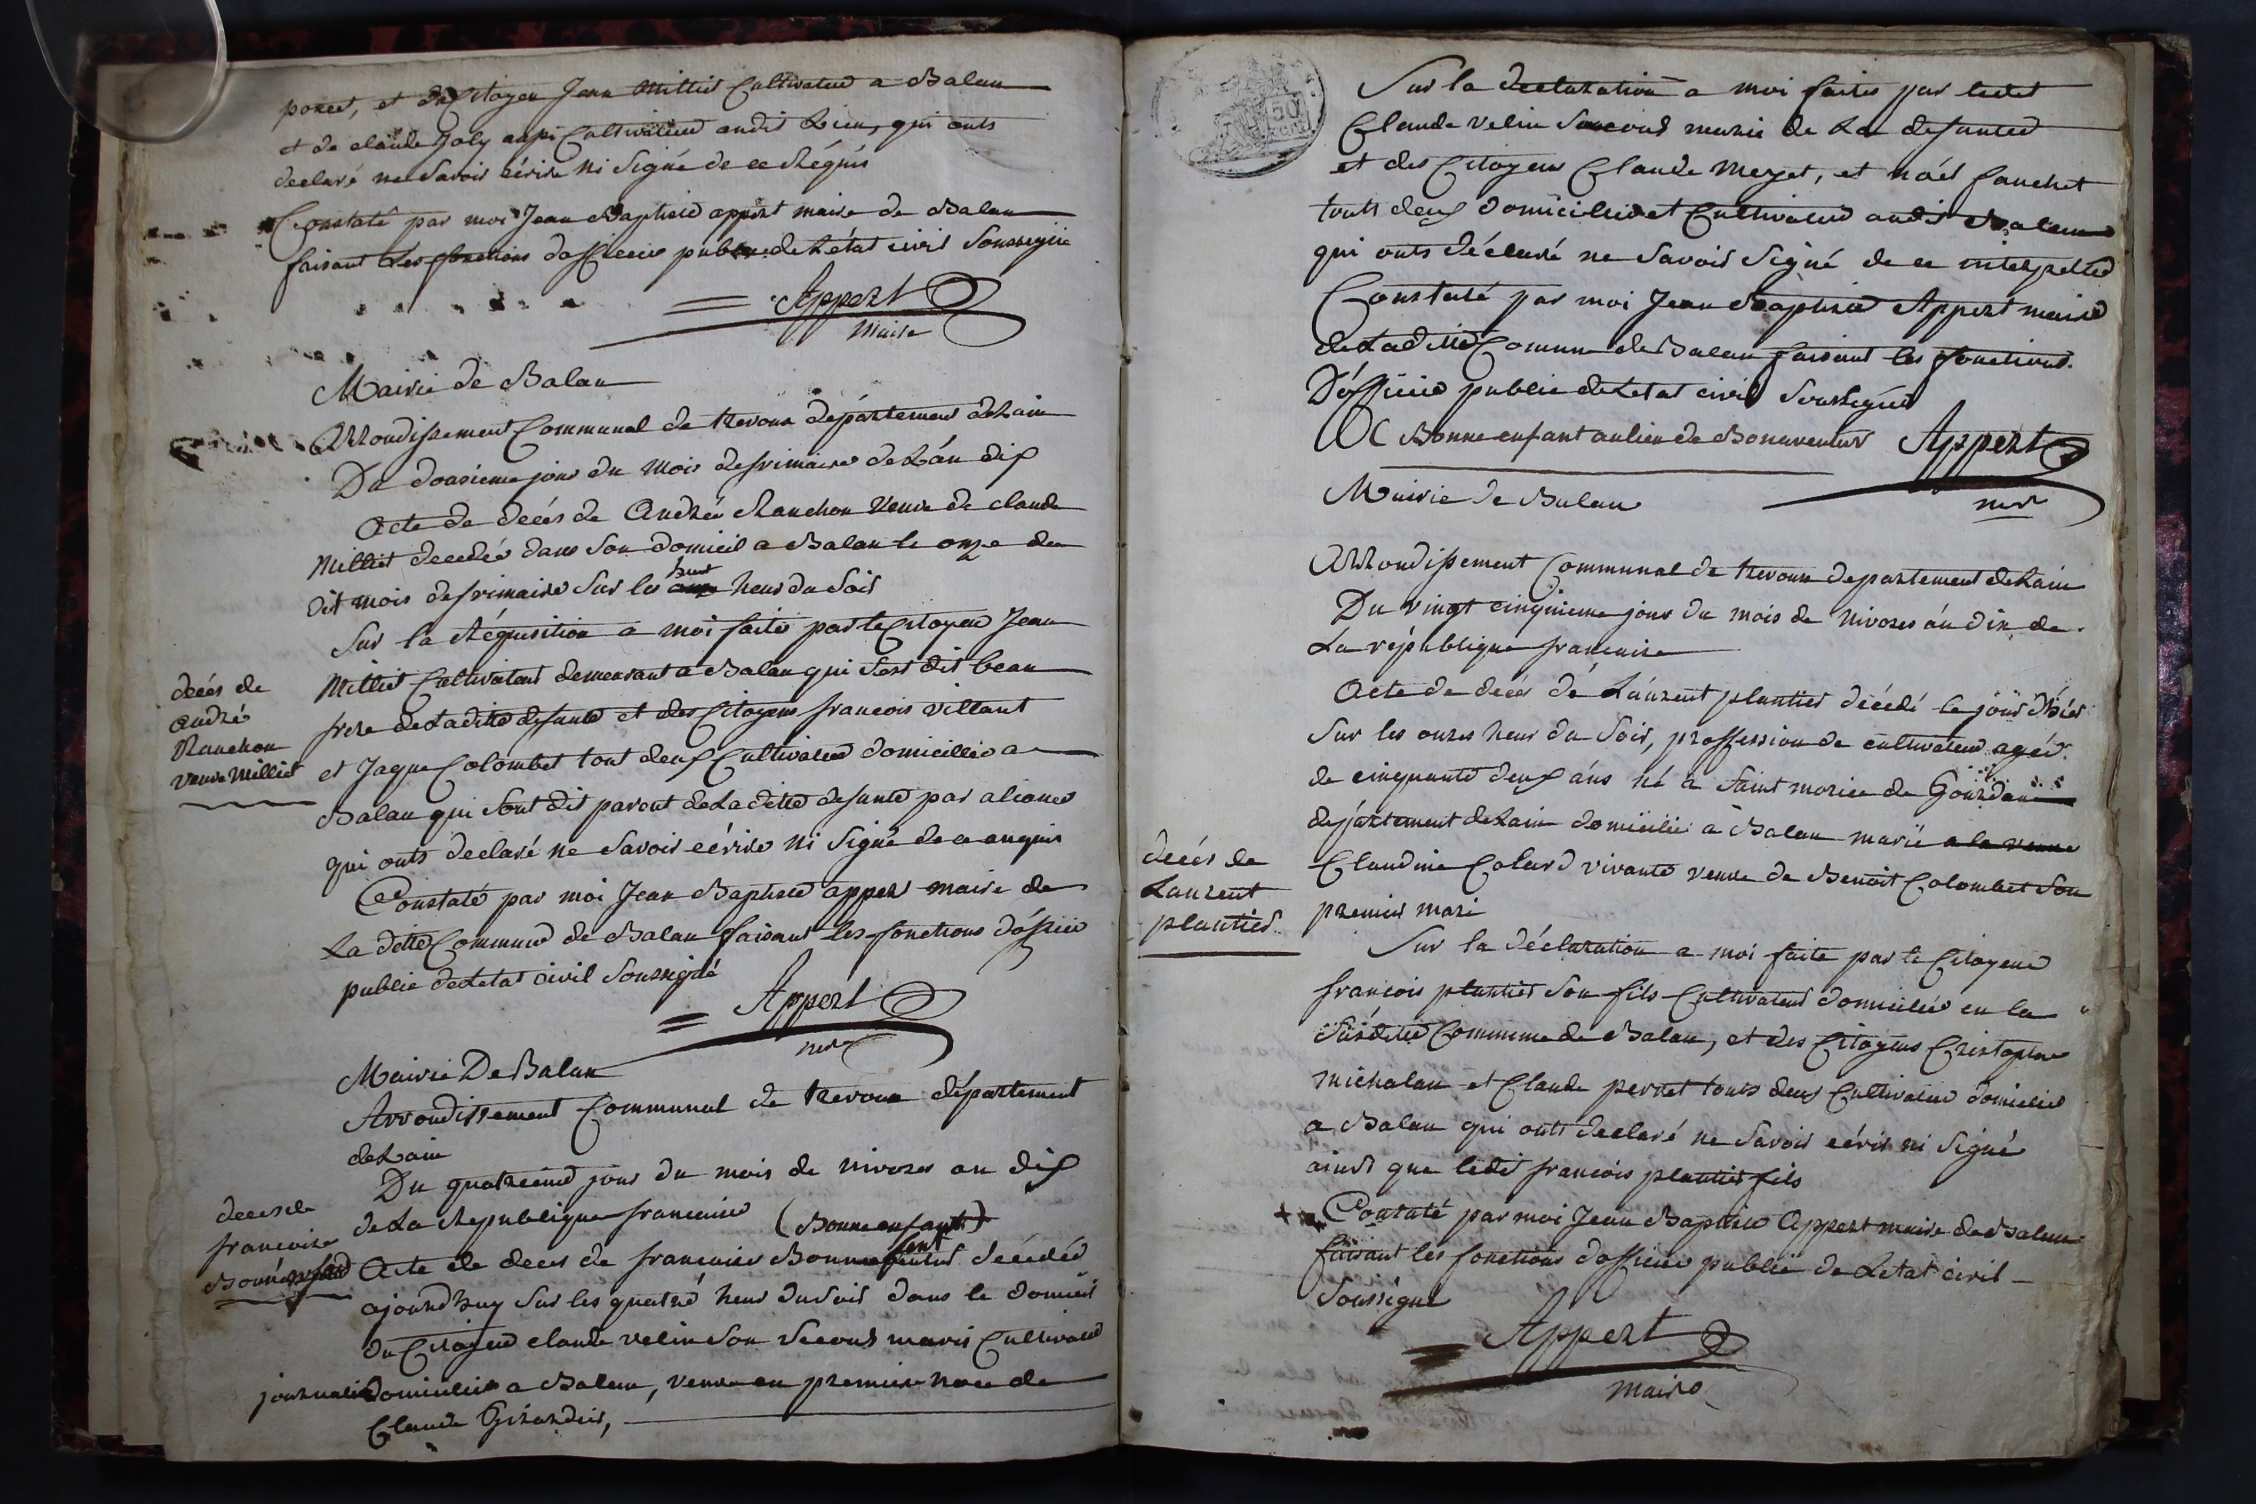 poncet, et du Citoyen Jean Milliet Cultivateur a Balan
et de claude Goly aussi Cultivateur audit Lieu, qui onts
declaré ne Savoir écrire ni Signé de ce Réquis
Constaté par moi Jean Baptiste appert maire de Balan
faisant Les fonctions dofficier public de L'état civil Soussigné
Appert
Maire
Mairie de Balan
Arrondissement Communal de trevoux département de Lain
Du douzieme jour du mois de frimaire de L'án dix
Acte de décés de Andréé Ranchon Veuve de claude
Milliet decedée dans Son domicil a Balan le onze du
dit mois de frimaire Sur les huit heur du Soir
Sur la Réquisition a moi faite par le Citoyen Jean
Milliet Cultivateur demeurant a Balan qui S'est dit beau
frere de La ditte defunte et des Citoyens francois villant
et Jaque Colombet tout deux Cultivateur domicilliés a
Balan qui Sont dit parent de La ditte defunte par aliance
qui onts declaré ne Savoir éérire ni Signé de ce anquis
Constaté par moi Jean Baptiste appert maire de
La ditte Commune de Balan faisant les fonctions dóficier
public de Letat civil Soussigné
Appert
mre
decés de
andré
Ranchon
veuve Milliet
Mairie De Balan
Arrondissement Communal de trevoux département
de Lain
Du quatrieme jour du mois de nivoses an dix
de La Republique francaise
(Bonne enfant)
Acte de deces de francoise Bonne décédée
ajourdhuy Sur les quatre heur du Soir dans le domicil
du Citoyen claude velin Son Second maris Cultivateur
journalier domicilié a Balan, veuve en premiere noce de
Claude Girardis,
deces de
francoise
Sur la declaration a moi faites par ledit
Claude velin Second marie de La defuntes
et des Citoyens Claude Meyet, et nóél fauchet
touts deux domicilliés et Cultivateur audit Balan
qui onts déclaré ne Savoir Signé de ce interpellés
Constaté par moi Jean Baptiste Appert maire
de La ditte Comune de Balan faisant les fonctions
D'officier public de Letat civil Soussignés
Bonne enfant au lieu de Bonaventur Appert
mre
Mairie de Balan
Arrondissement Communal de trevoux departement de Lain
Du vingt cinquieme jour du mois de nivoses án dix de
La république francaise
Acte de decés dé Láurent plantier décédé le jour d'hiér
Sur les onzes heur du Soir, proffession de cultivateur agéé
de cinquante deux áns né a Saint morice de Gourdans
département de Lain domicilié a Balan marié a la veuve
Claudine Colard vivante veuve de Benoit Colombet Son
premier mari
decés de
Laurent
plantier
Sur la déclaration a moi faite par le Citoyen
francois plantier Son fils Cultivateur domicilié en la
Susditte Commune de Balan, et des Citoyens Cristophe
michalan et Claude perret touts deux Cultivateur domicilié
a Balan qui onts declaré ne Savoir éérir ni Signé
ainsi que ledit francois plantier fils
Contaté par moi Jean Baptiste Appert maire de Balan
faisant les fonctions dofficier public de Létat civil
Soussigné
Appert
maire